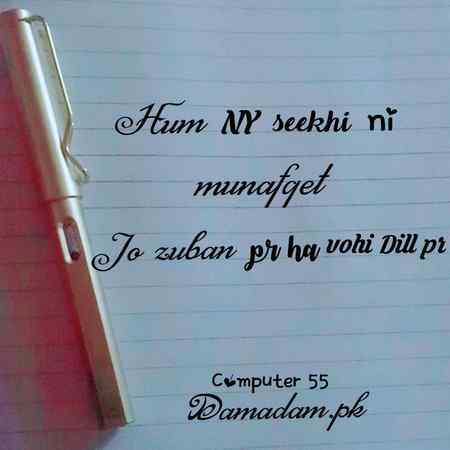 Hum NY seekhi ni
munafqet
Jo zuban pr ha vohi Dill pr
Computer 55
Damadam.pk